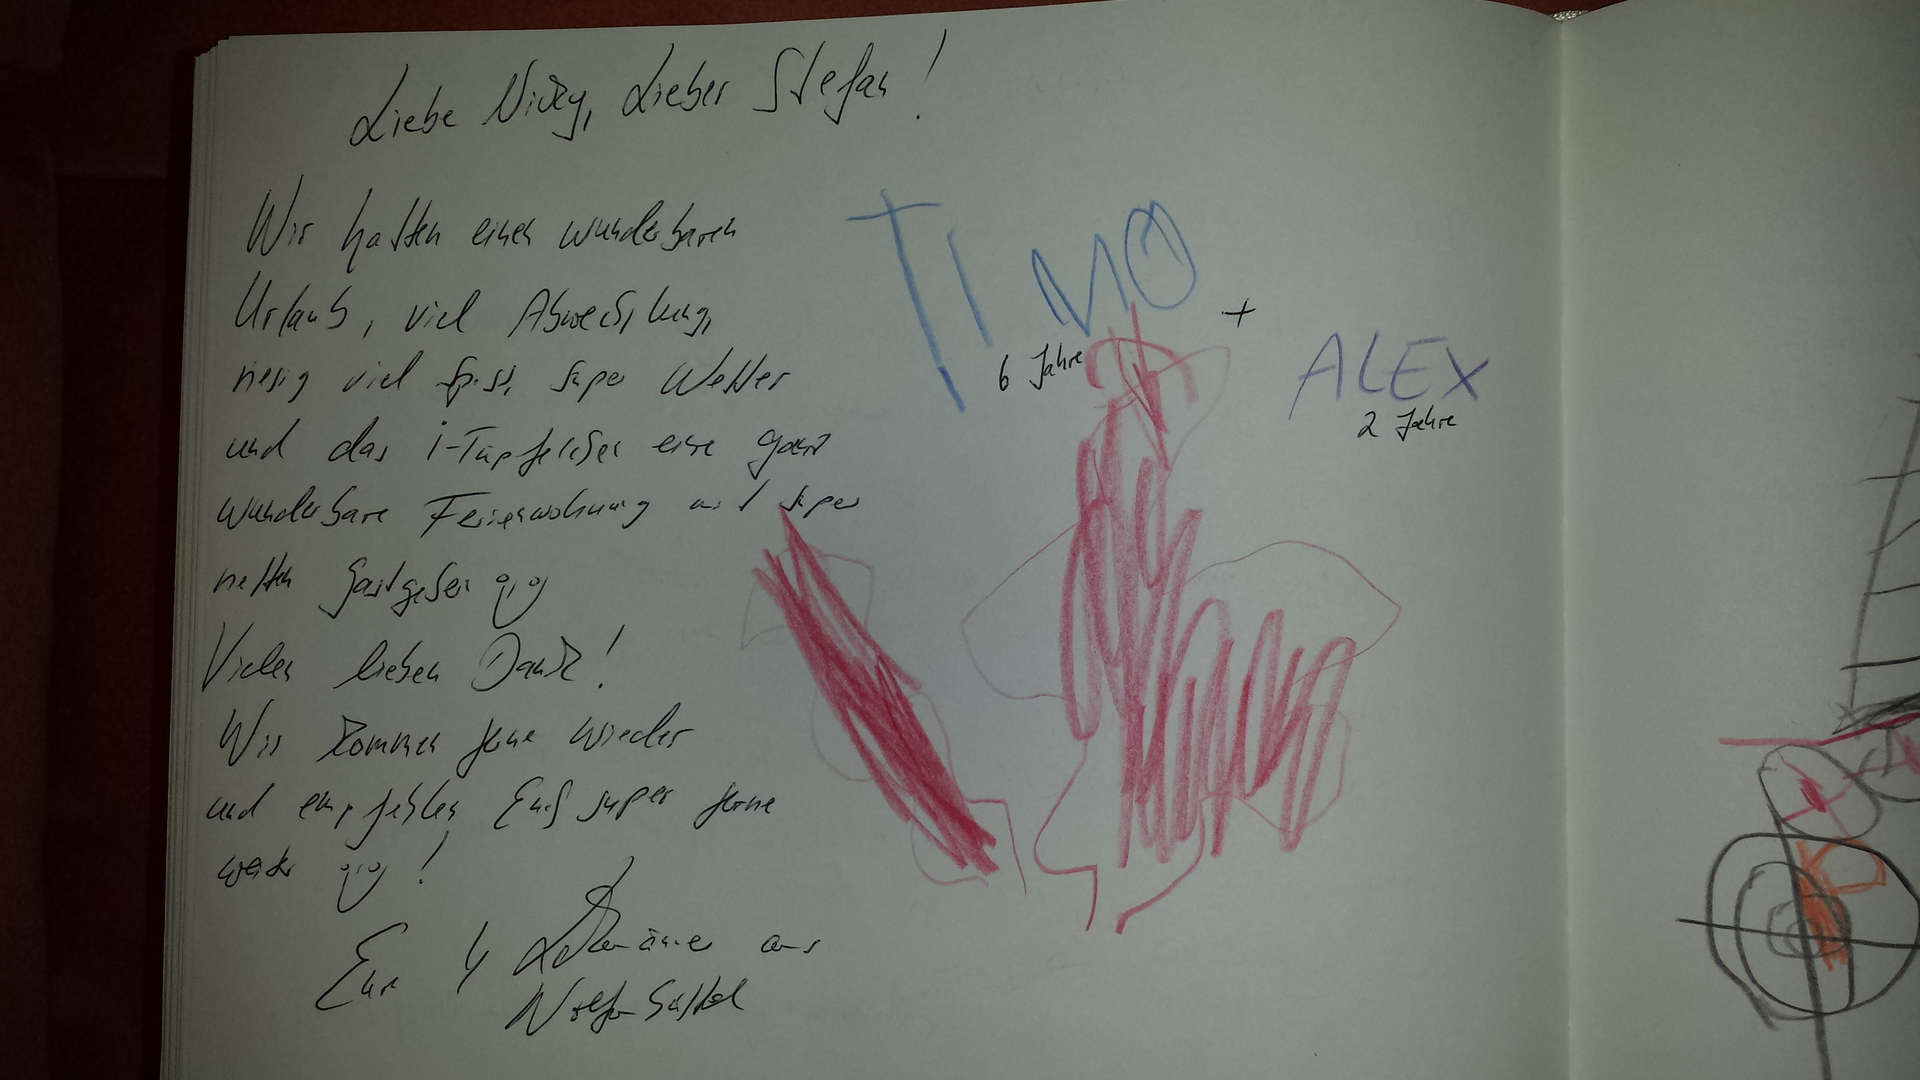 Liebe Nicky, Lieber Stefan!
Wir hatten einen wunderbaren
Urlaub, viel Abwechslung,
riesig viel Spass, super Wetter
und das i-Tüpfelchen eine ganz
wunderbare Ferienwohnung mit super
netten Gastgebern
Vielen lieben Dank!
Wir kommen gerne wieder
und empfehlen Euch super gerne
weiter !
Eure 4 aus
TIMO
6 Jahre
+
ALEX
2 Jahre